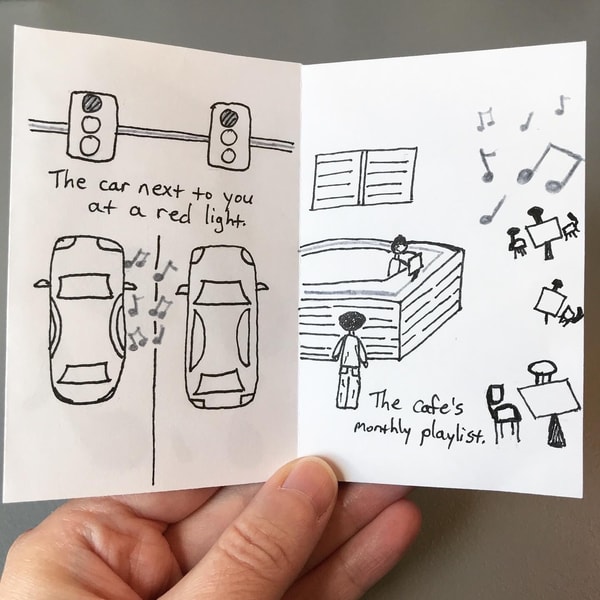 The car next to you
at a red light.
The cafe's
monthly playlist.